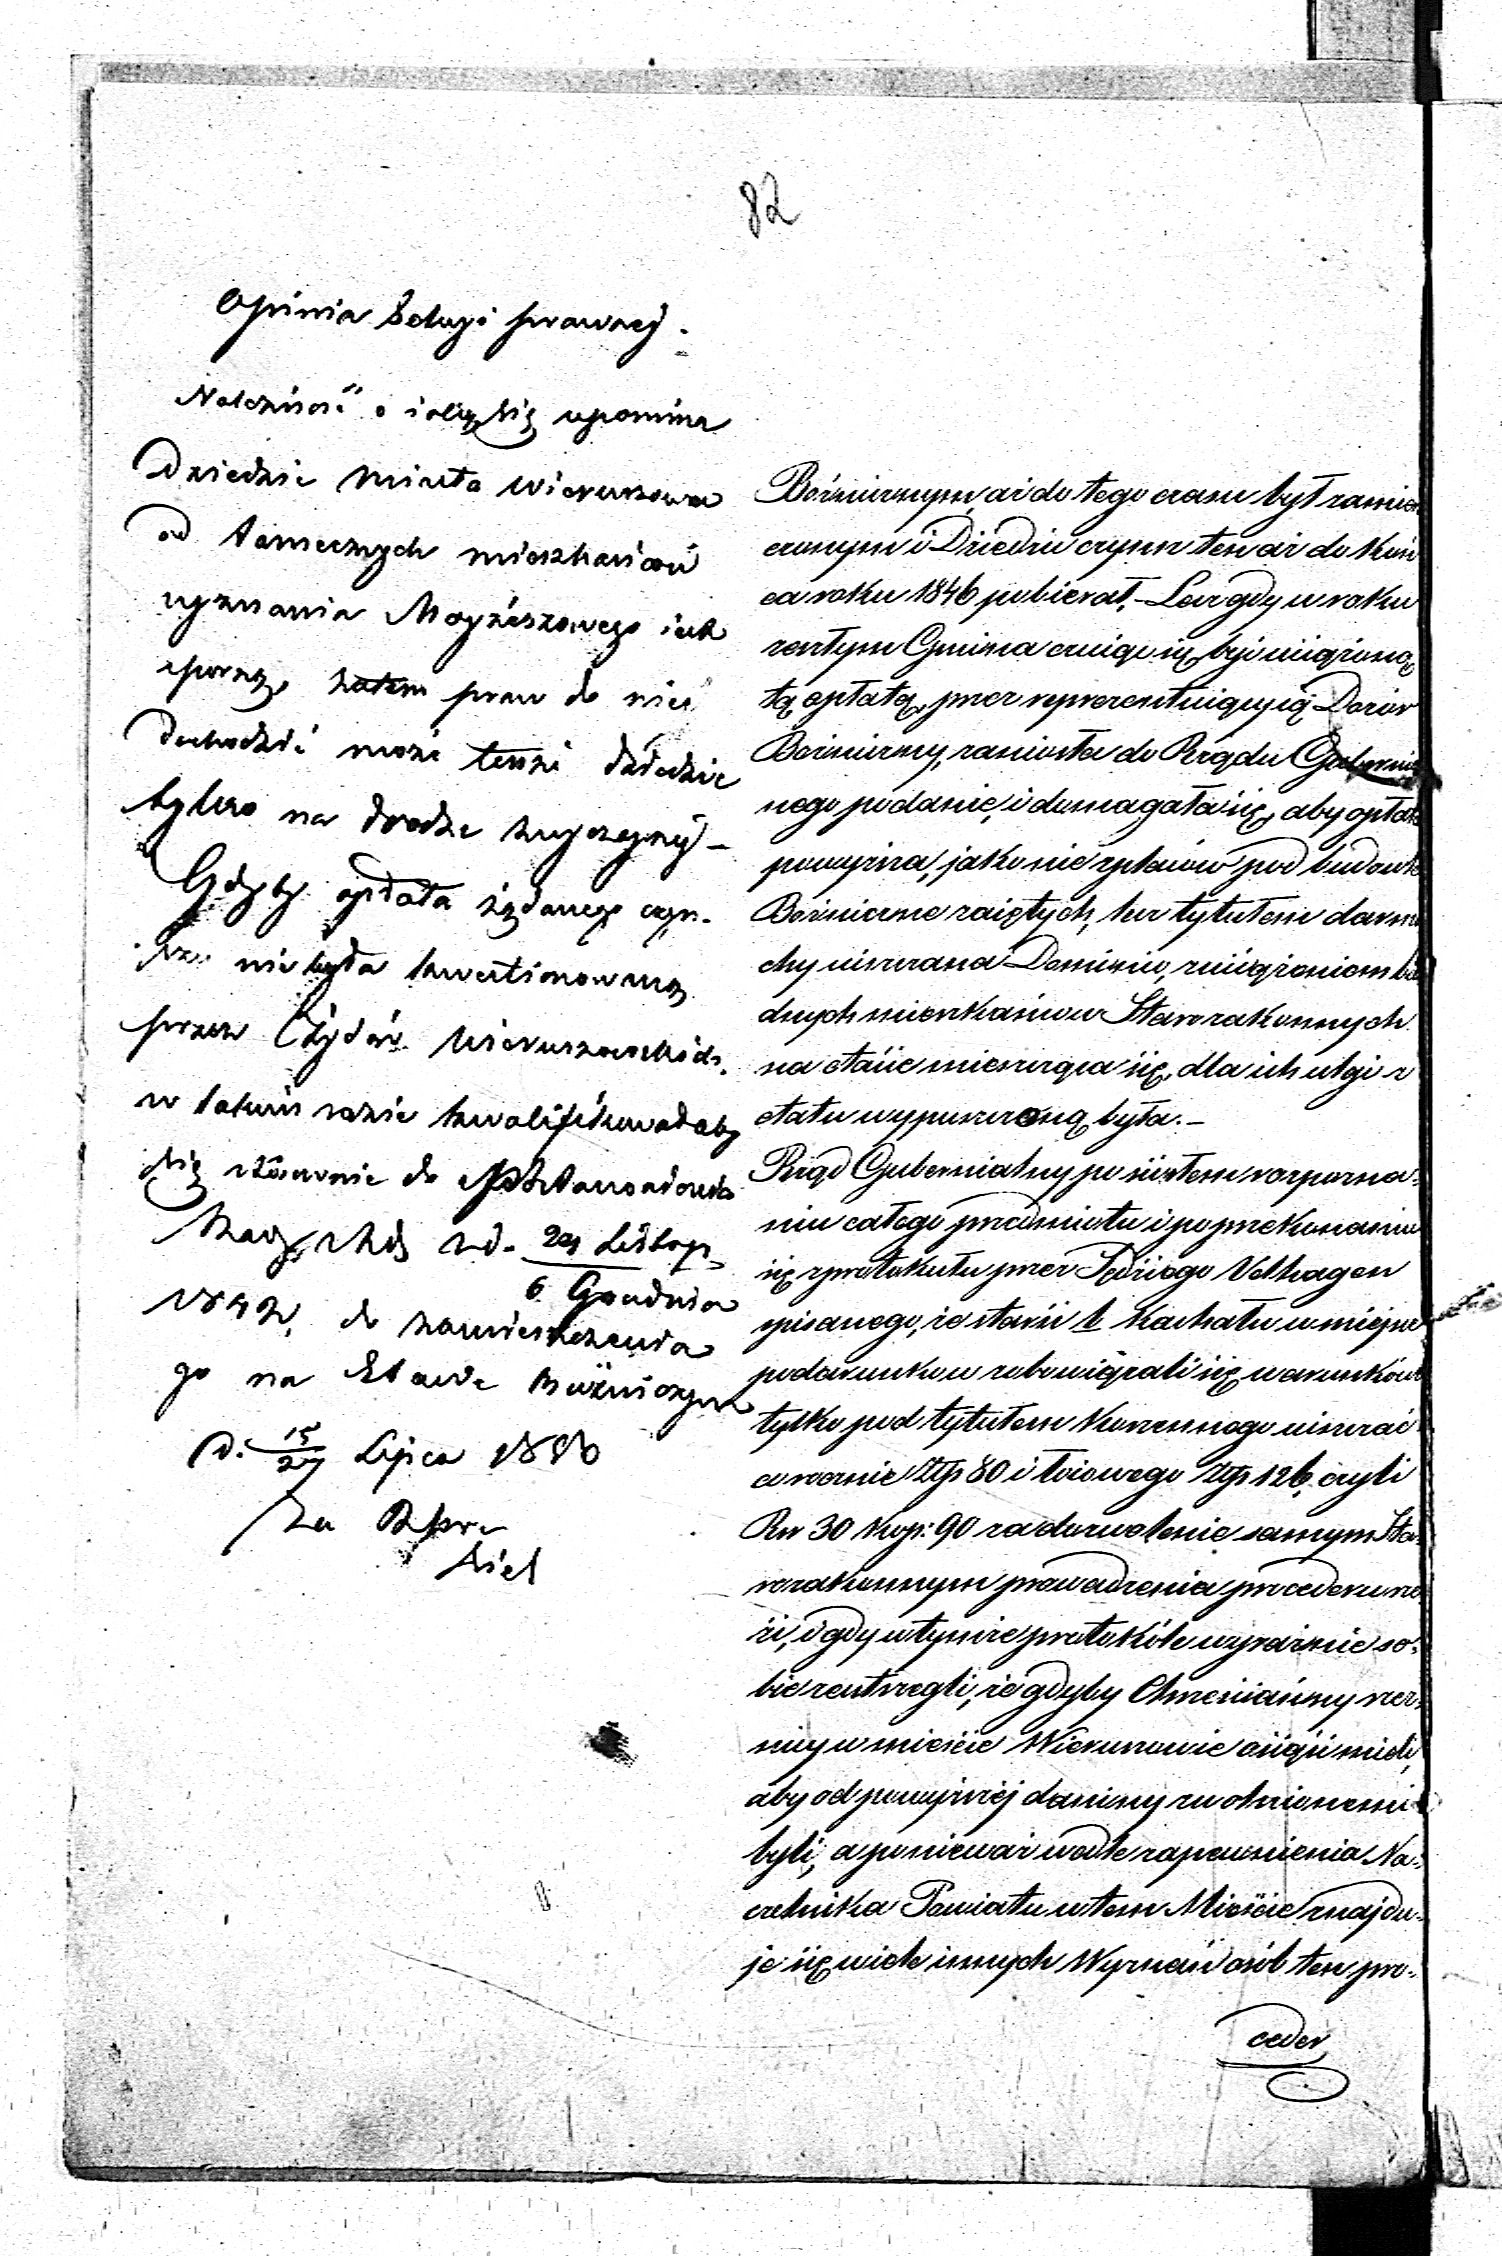 82
Opinia Sekcyi prawnej.
Należność o jaką się upomina
Dziedzic Miasta Wieruszowa
od tamecznych mieszkańców
wyznania Mojżeszowego jest
sporną, zatem praw do niej
dochodzić może tenże dziedzic
tylko na drodze zwyczajnej –
Gdyby opłata żądanego czyn-
szu nie była kwestionowaną
przez Żydów Wieruszowskich,
w takim razie kwalifikowałaby
się stosownie do Postanowienia
Rady z d. 24 Listop.
6 Grudnia
1842, do zamieszczenia
go na Etacie Bóżniczym
d. 15/27 Lipca 1850
Za
Bóżniczym, aż do tego czasu był zamiesz
czonym i Dziedzic czynsz ten aż do koń
ca roku 1846 pobierał. – Lecz gdy w roku
zeszłym Gmina czując się być uciążoną
tą opłatą, przez reprezentujący ją Dozór
Bóżniczny, zaniosła do Rządu Gubernial
nego podanie, i domagała się, aby opłata
powyższa, jako nie z placów pod budowle
Bóżniczne zajętych, lecz tytułem darmo
chy uiszczana Dominio, z uciążeniem bie
dnych mieszkańców Starozakonnych
na etacie mieszcząca się, dla ich ulgi z
etatu wypuszczoną była. –
Rząd Gubernialny po ścisłem rozpozna-
niu całego przedmiotu i po przekonaniu
się z protokułu przez Sędziego Velhagen
spisanego, że starsi b. Kachału w miejsce
podarunków zobowiązali się warunkowo
tylko pod tytułem Korzennego uiszczać
corocznie Złp 80 i łojowego Złp 126, czyli
Rsr 30 kop: 90 za dozwolenie samym Sta-
rozakonnym prowadzenia procederu rze
zi, i gdy w tymże protokóle wyraźnie so-
bie zastrzegli, że gdyby Chrześciańscy rzeź-
nicy w mieście Wieruszowie osiąść mieli,
aby od powyższej daniny zwolnionemi
byli, a ponieważ wedle zapewnienia Na-
czelnika Powiatu w tem Mieście znajdu-
je się wiele innych Wyznań osób ten pro-
ceder